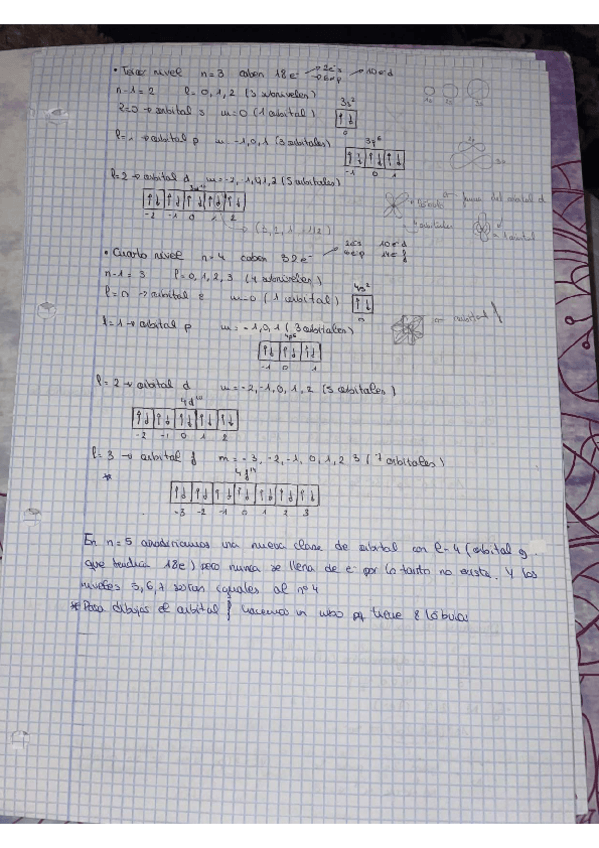 • Tercer nivel n=3 caben 18e⁻ → 2e⁻s → 10e⁻d
→ 6e⁻p
n-1=2 l=0,1,2 (3 subniveles)
l=0 → orbital s m=0 (1 orbital) 3s²
↑↓
0
l=1 → orbital p m=-1,0,1 (3 orbitales) 3p⁶
↑↓ ↑↓ ↑↓
-1 0 1
l=2 → orbital d m=-2,-1,0,1,2 (5 orbitales)
↑↓ ↑↓ ↑↓ ↑↓ ↑↓
-2 -1 0 1 2
4 orbitales 1 orbital
• Cuarto nivel n=4 caben 32e⁻ → 2e⁻s 10e⁻d
6e⁻p 14e⁻f
n-1=3 l=0,1,2,3 (4 subniveles)
l=0 → orbital s m=0 (1 orbital) 4s²
↑↓
0
l=1 → orbital p m=-1,0,1 (3 orbitales)
4p⁶
↑↓ ↑↓ ↑↓
-1 0 1
l=2 → orbital d m=-2,-1,0,1,2 (5 orbitales)
4d¹⁰
↑↓ ↑↓ ↑↓ ↑↓ ↑↓
-2 -1 0 1 2
l=3 → orbital f m=-3,-2,-1,0,1,2 3 (7 orbitales)
* 4f¹⁴
↑↓ ↑↓ ↑↓ ↑↓ ↑↓ ↑↓ ↑↓
-3 -2 -1 0 1 2 3
En n=5 una nueva clase de orbital con l=4 (orbital g
que tendría 18e⁻) pero nunca se llena de e⁻ por lo tanto no existe. Y los
niveles 5,6,7 serían iguales al nº4
*Para dibujos de orbital f hacemos un cubo pq tiene 8 lóbulos